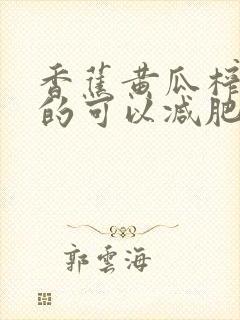 香蕉黄瓜榨
的可以减肥
郭云海